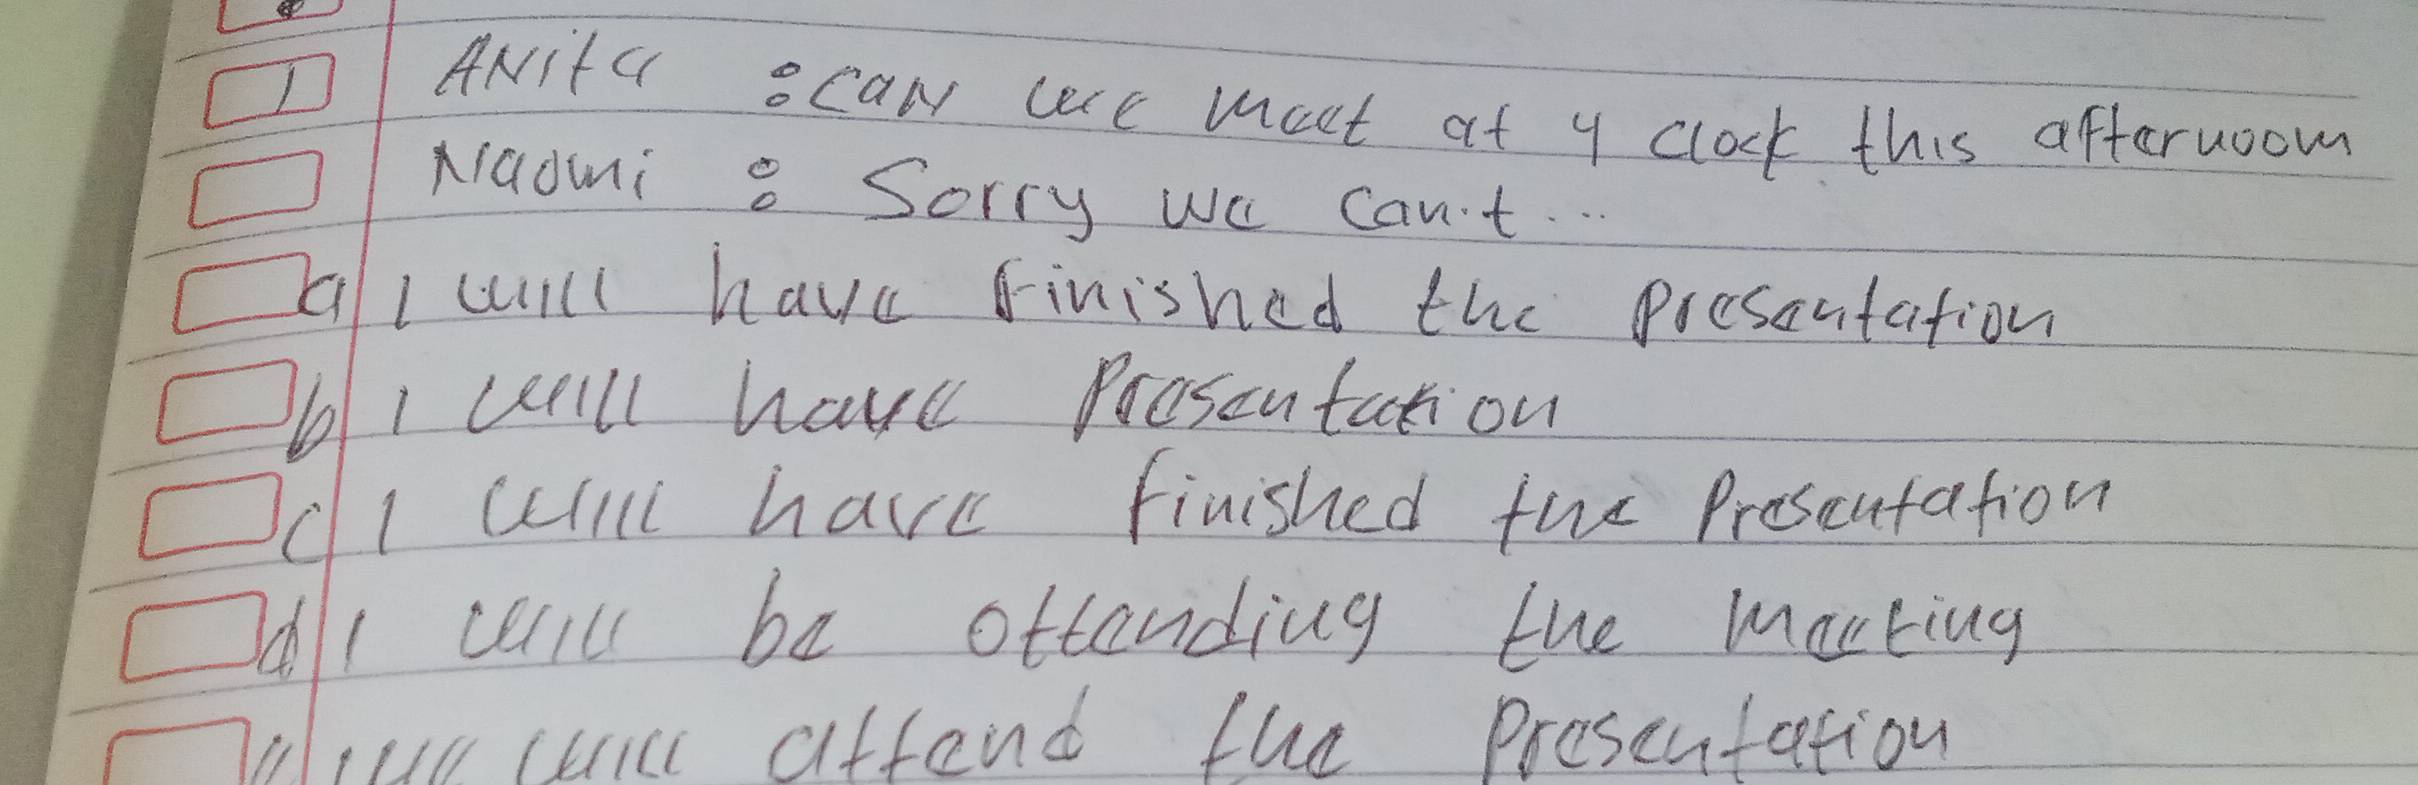 1 ANita : CAN we meet at 4 clock this afternoom
Naomi : Sorry we can't...
a I will have Finished the Presentation
b I will have Presentation
c I will have finished the Presentation
d I will be ottending the meeting
e we will attend the Presentation